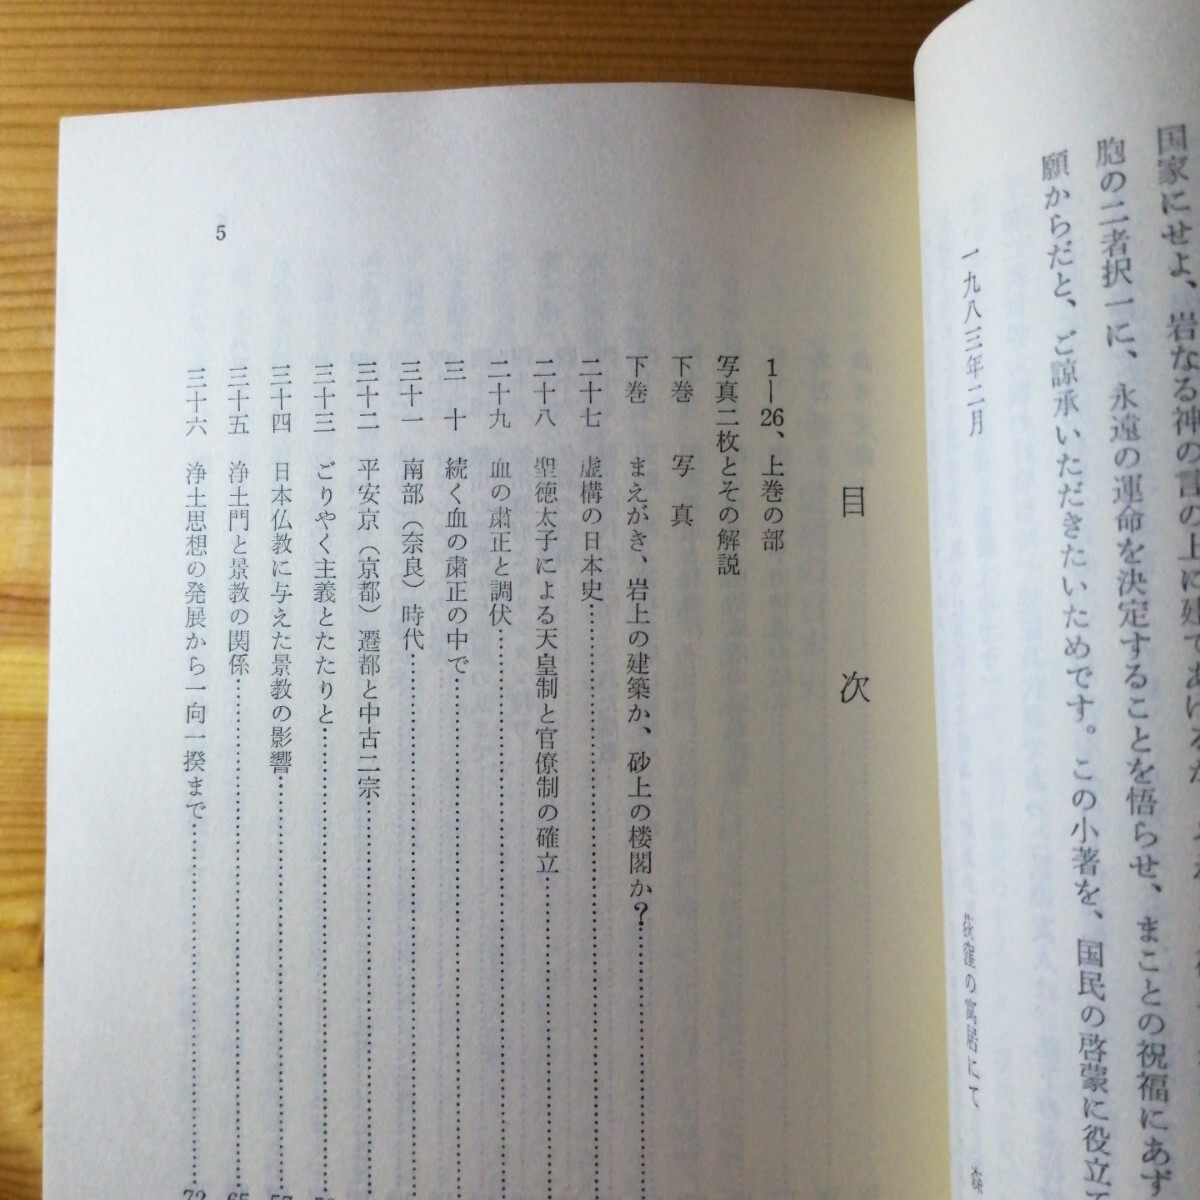 国家にせよ、岩なる神の言の上に建てあげるか
胞の二者択一に、永遠の運命を決定することを悟らせ、まことの祝福にあず
願からだと、ご諒承いただきたいためです。この小著を、国民の啓蒙に役立て
一九八三年二月
荻窪の寓居にて 森
目 次
1―26、上巻の部
写真二枚とその解説
下巻 写 真
下巻 まえがき、岩上の建築か、砂上の楼閣か?
二十七 虚構の日本史
二十八 聖徳太子による天皇制と官僚制の確立
二十九 血の粛正と調伏
三 十 続く血の粛正の中で
三十一 南部(奈良)時代
三十二 平安京(京都)遷都と中古二宗
三十三 ごりやく主義とたたりと
三十四 日本仏教に与えた景教の影響 57
三十五 浄土門と景教の関係 65
三十六 浄土思想の発展から一向一揆まで 72
5